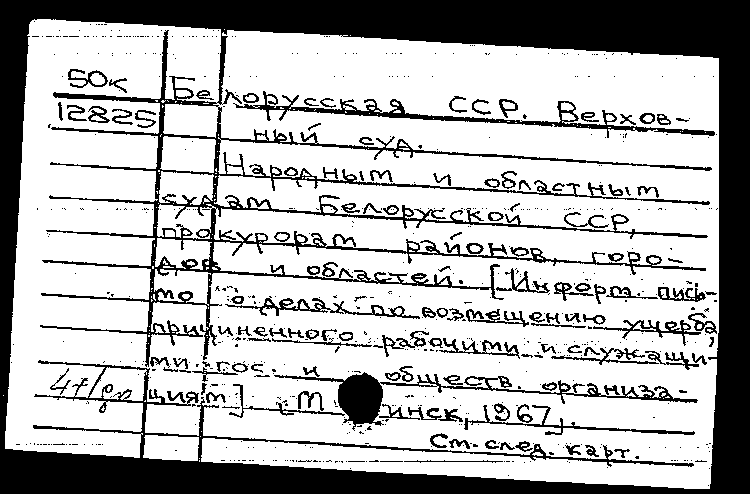 50к Белорусская ССР. Верхов-
12825 ный суд.
Народным и областным
судам Белорусской ССР,
прокурорам районов, горо-
дов и областей. [Информ. пись-
мо о делах по возмещению ущерба,
причиненного рабочими и служащи-
ми гос. и обществ. организа-
циям]. [М инск, 1967].
См. след. карт.